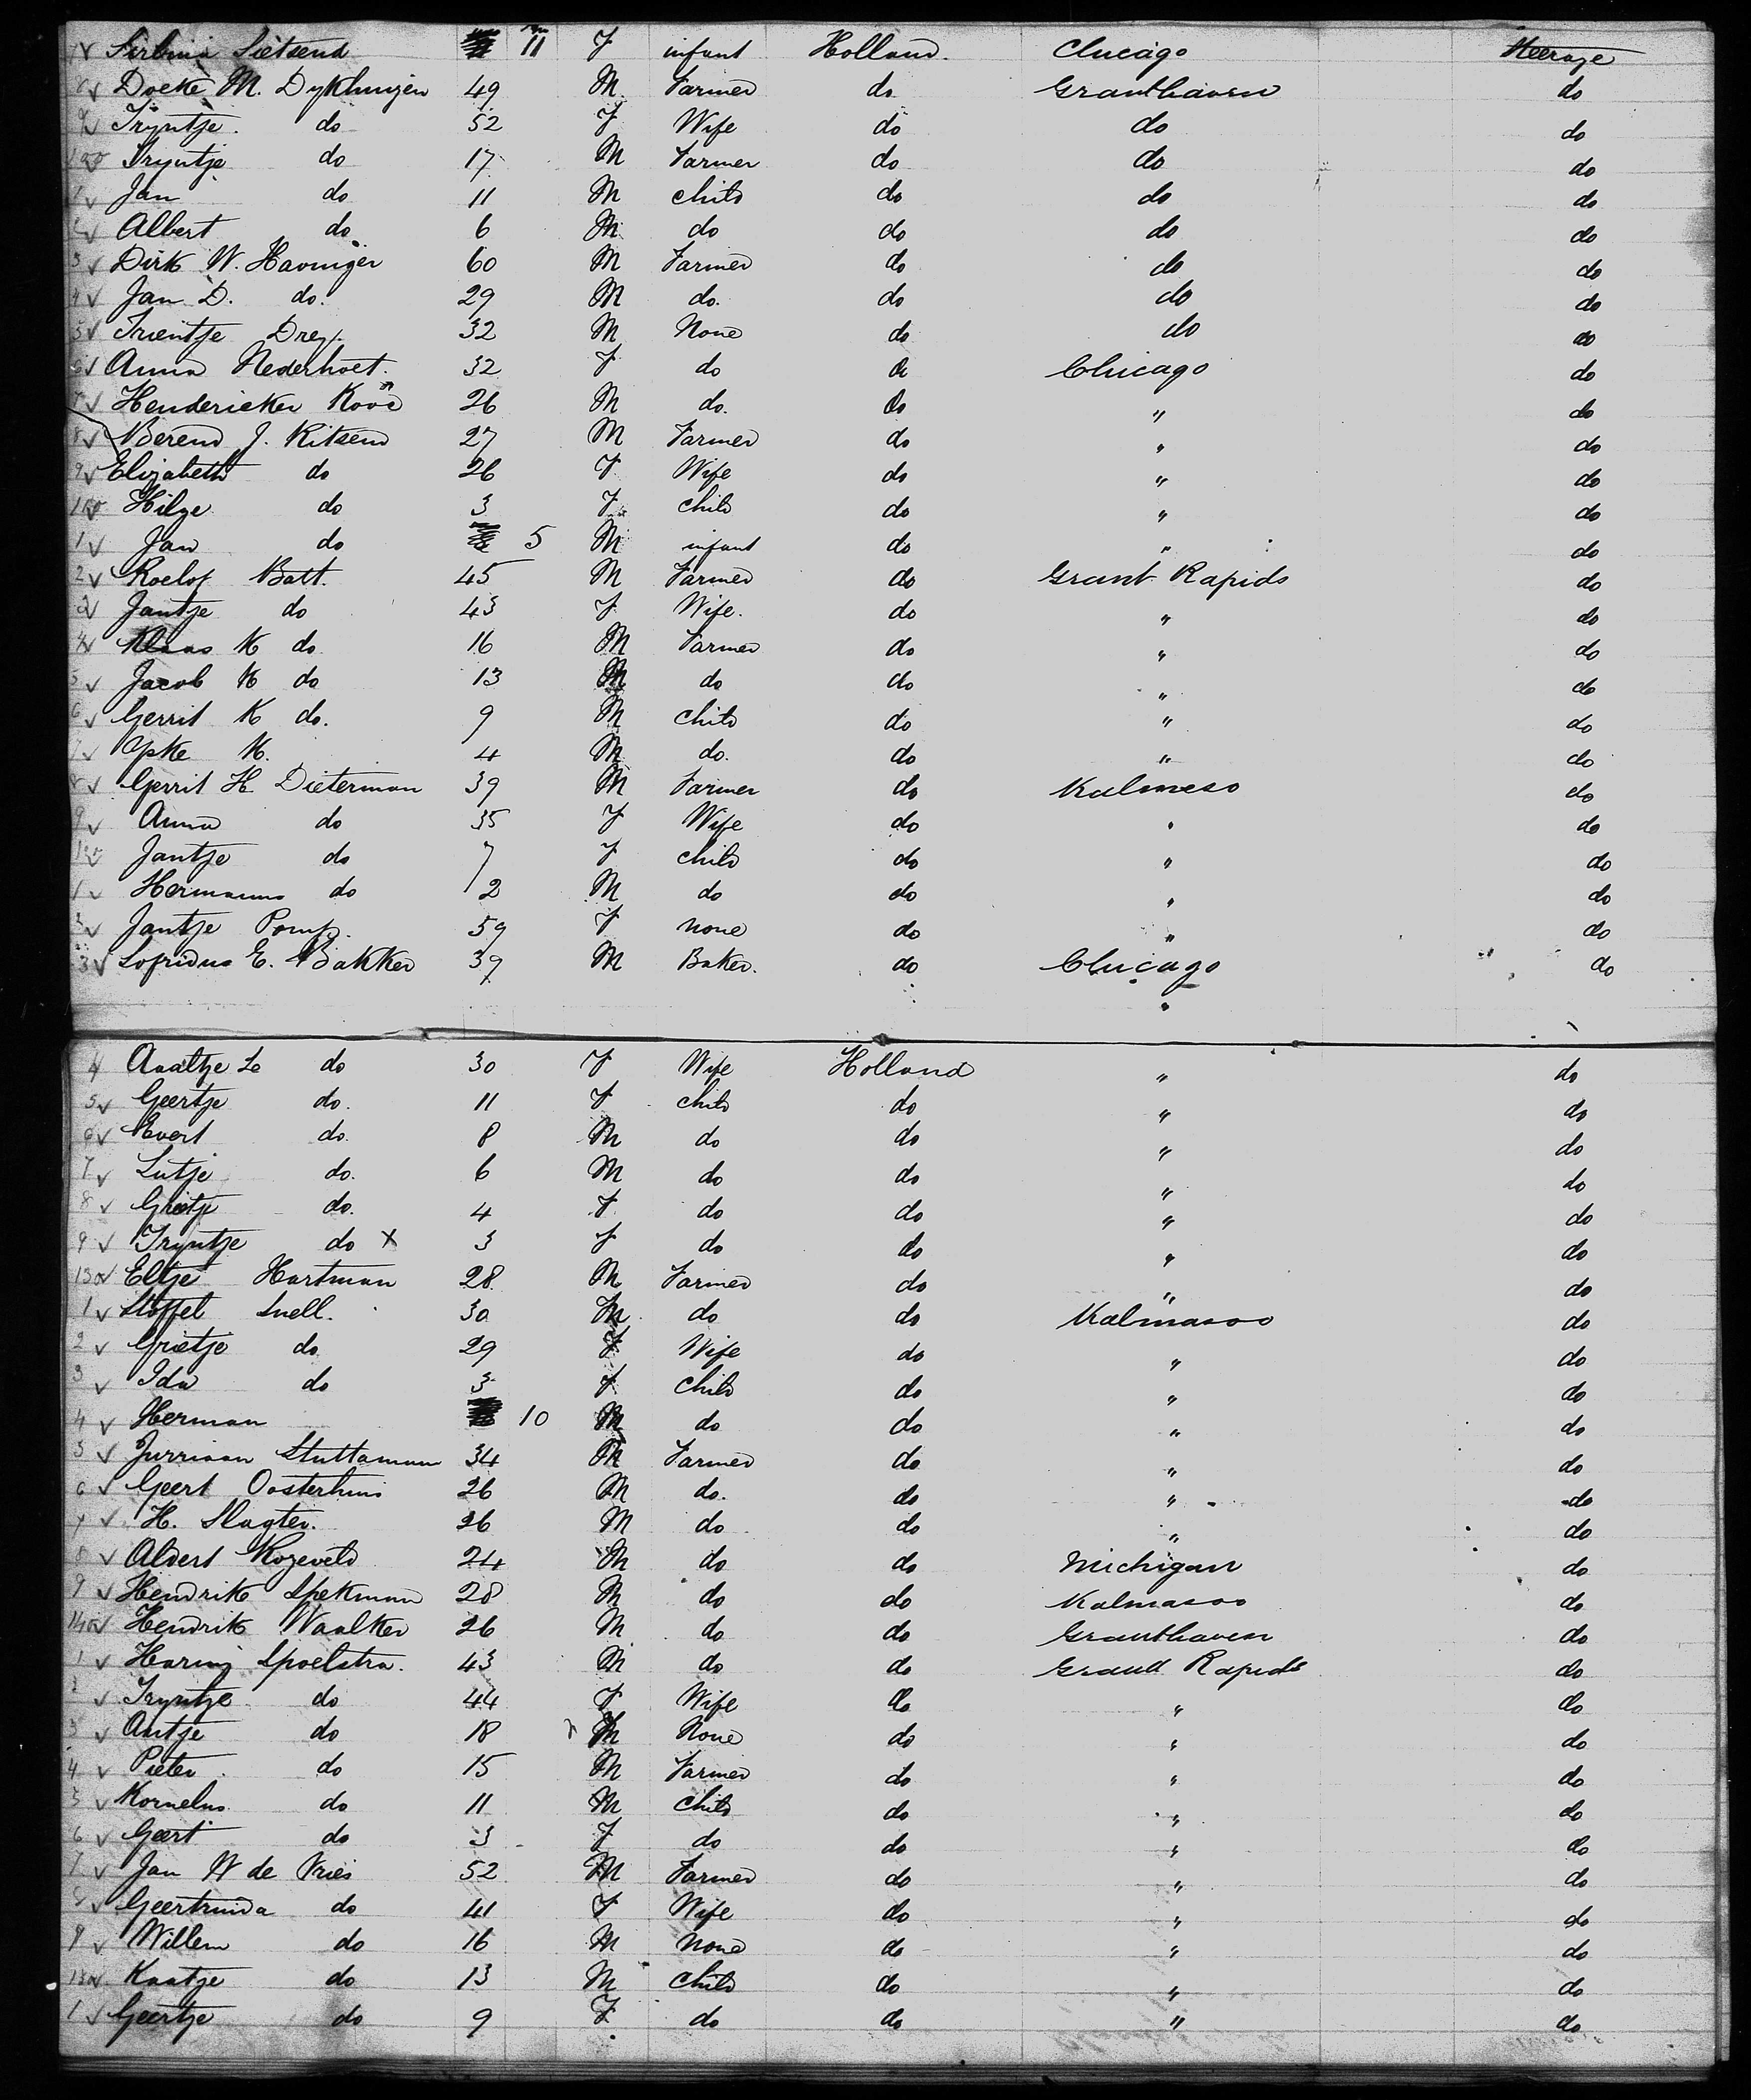 Sietsend 11 F infant Holland. Chicago Steerage
Doeke M. Dykhuizen 49 M Farmer do Granthaven do
9 Tryntje do 52 F Wife do do do
Tryntje do 17 M Farmer do do do
1 Jan do 11 M child do do do
2 Albert do 6 M do do do do
3 Dirk W. Havinger 60 M Farmer do do do
4 Jan D. do. 29 M do. do do do
5 Trientje Drey. 32 M None do do do
6 Anna Nederhoet. 32 F do do Chicago do
7 Hendericker 26 M do. do " do
8 Berend J. Kitsend 27 M Farmer do " do
9 Elizabeth do 26 F Wife do " do
Hilge do 3 F child do " do
1 Jan do 5 M infant do " do
2 Roelof Batt. 45 M Farmer do Grant Rapids do
3 Jantje do 43 F Wife. do " do
4 Klaas K do 16 M Farmer do " do
5 Jacob K do 13 M do do " do
6 Gerrit K do. 9 M child do " do
7 Ypke K. 4 M do. do " do
8 Gerrit H. Dieterman 39 M Farmer do Kalmeso do
9 Anna do 35 F Wife do " do
Jantje do 7 F child do " do
1 Hermanus do 2 M do do " do
Jantje Pomp. 59 F none do " do
3 E. Bakker 39 M Baker. do Chicago do
"
4 Aaltje Le do 30 F Wife Holland " do
5 Geertje do. 11 F child do " do
6 Evert do. 8 M do do " do
7 Lutje do. 6 M do do " do
8 Grietje do. 4 F do do " do
9 Tryntje do X 3 F do do " do
130 Eltje Hartman 28 M Farmer do " do
1 Stoffel Snell. 30 M do do Kalmasoo do
2 Grietje do 29 F Wife do " do
3 Ida do 3 F Child do " do
4 Herman 10 M do do " do
5 Jurriaan Stuttamun 34 M Farmer do " do
6 Geert Oosterhuis 26 M do. do " do
7 H. Slagter. 26 M do do " do
8 Aldert Rozeveld 24 M do do Michigan do
9 Hendrik Spekman 28 M do do Kalmasoo do
140 Hendrik Waalker 26 M do do Granthaven do
1 Haring Spoelstra. 43 M do do Grand Rapids do
2 Tryntje do 44 F Wife do " do
3 Antje do 18 x M None do " do
4 Pieter do 15 M Farmer do " do
5 Kornelus do 11 M Child do " do
6 Geert do 3 F do do " do
7 Jan W de Vries 52 M Farmer do " do
8 Geertruida do 41 F Wife do " do
9 Willem do 16 M None do " do
Kaatje do 13 M Child do " do
1 Geertje do 9 F do do " do